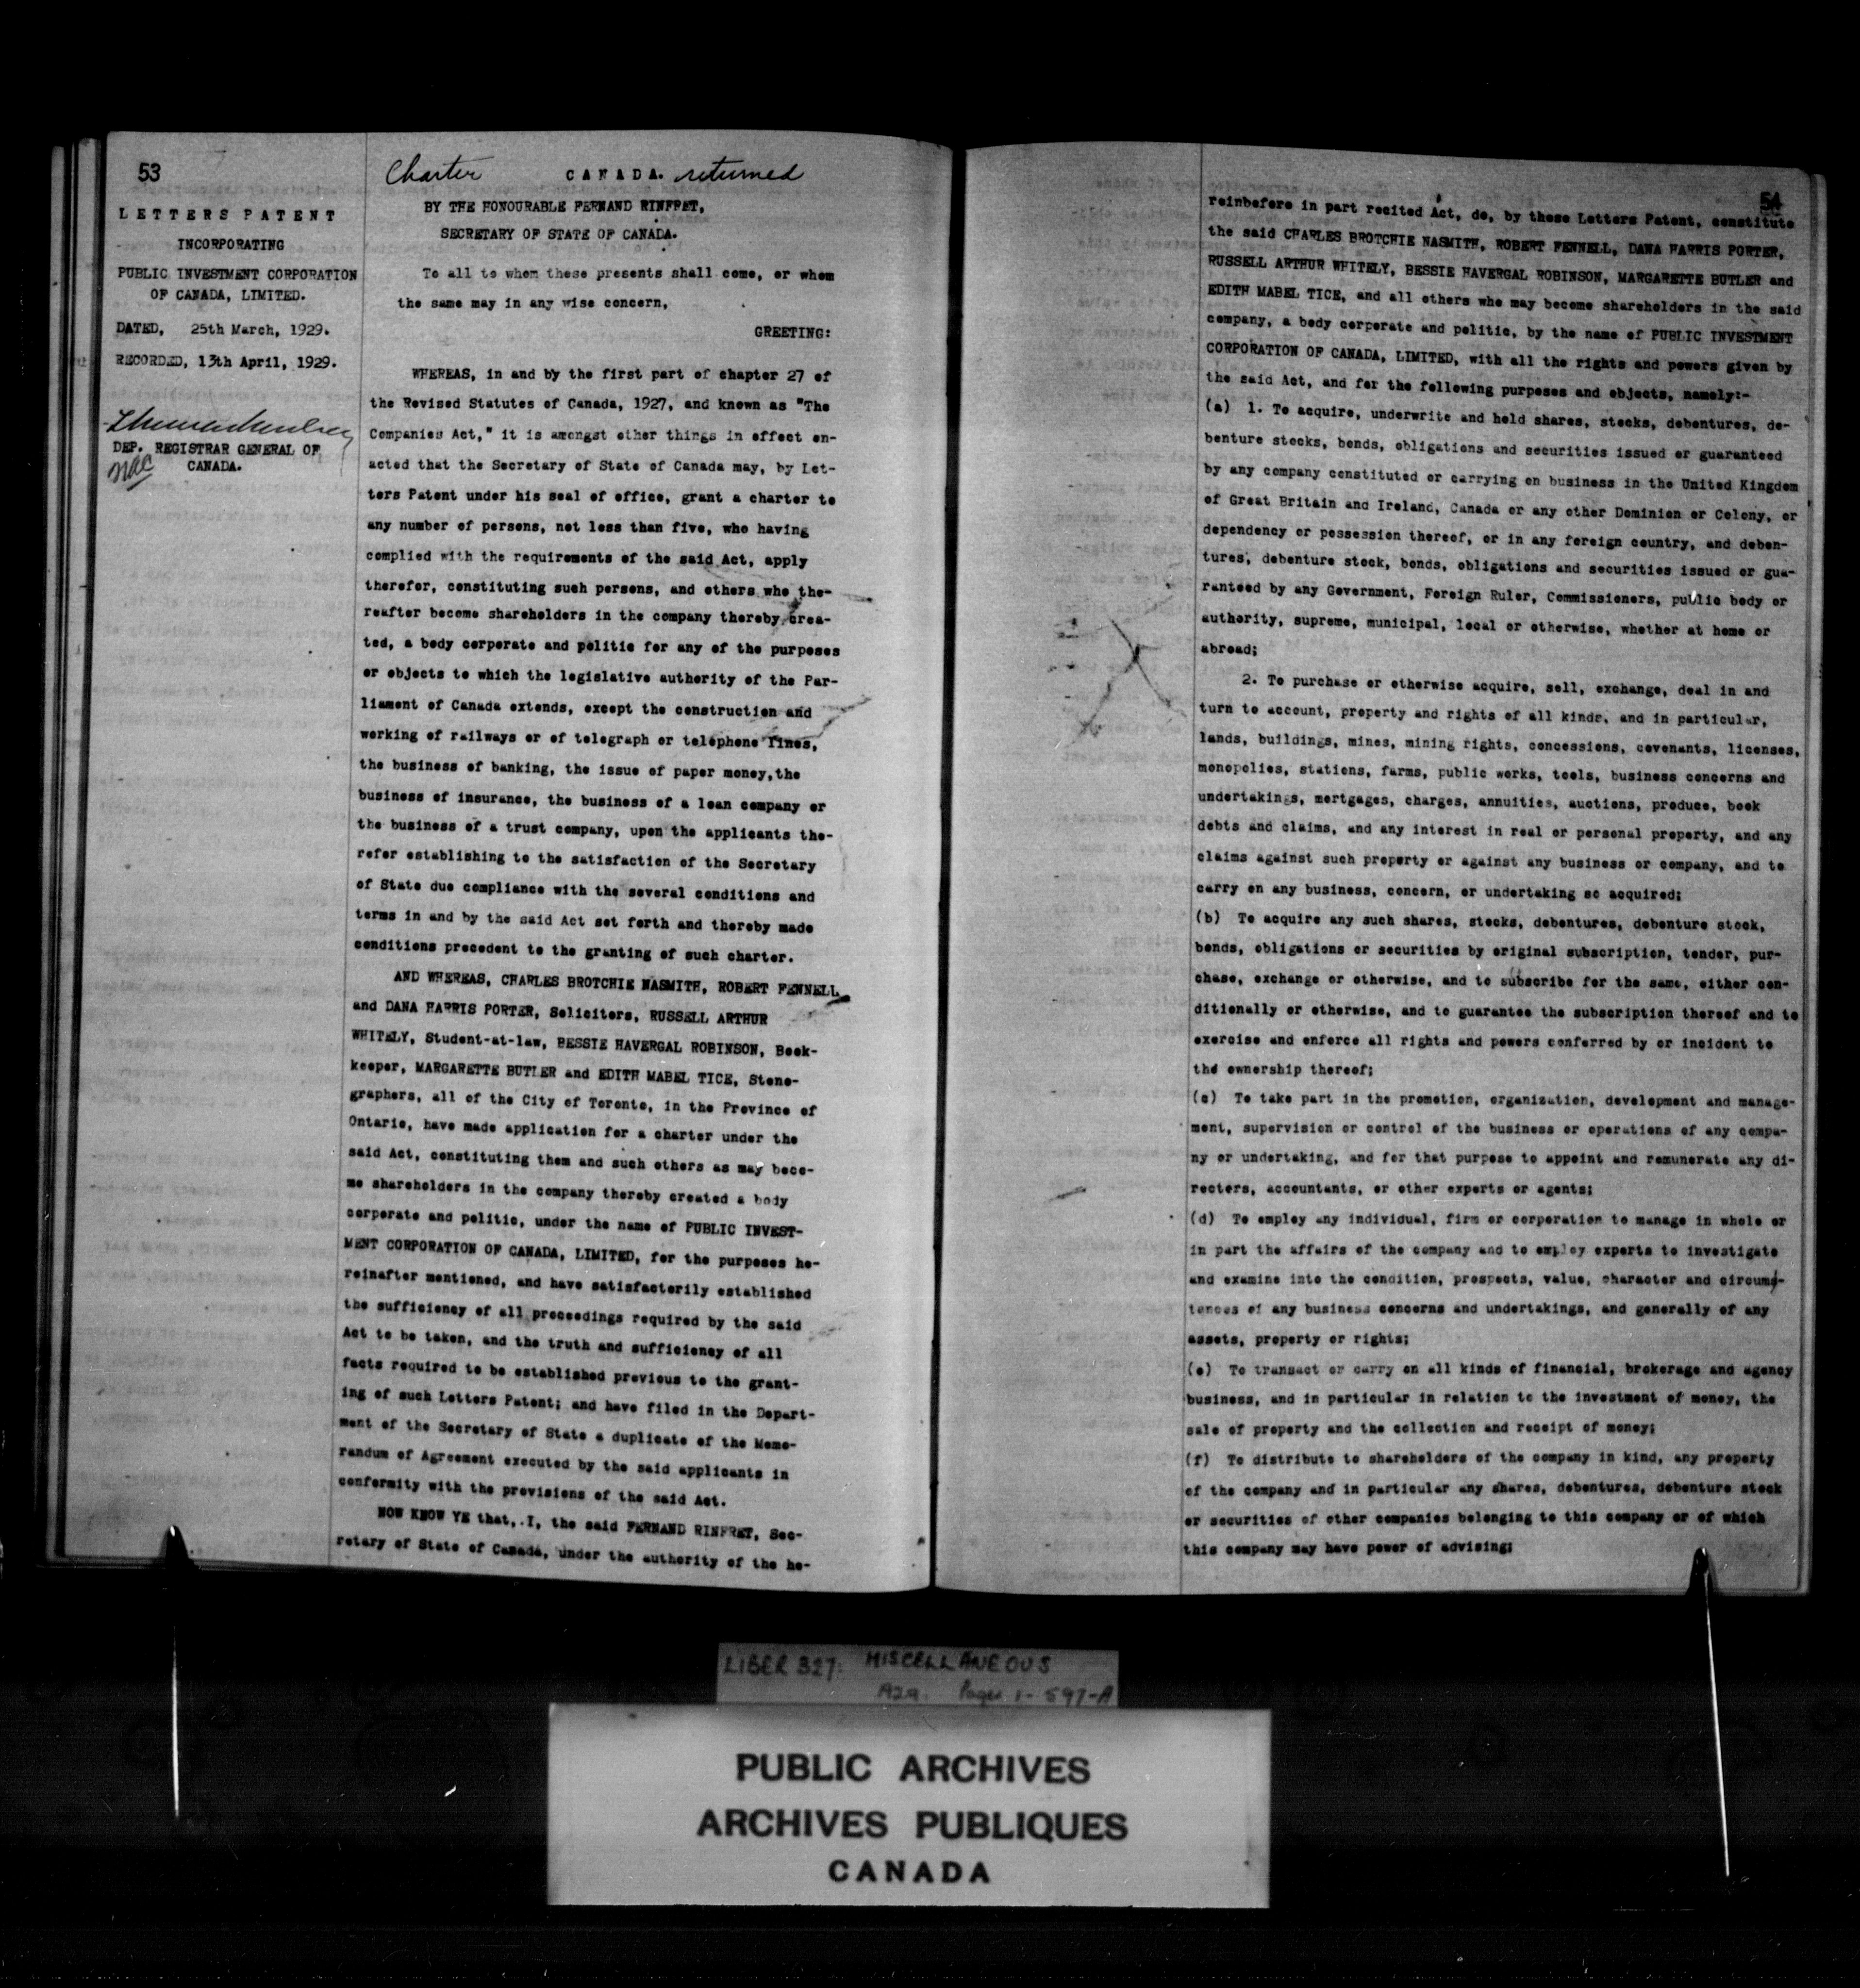 53
LETTERS PATENT
INCORPORATING
PUBLIC INVESTMENT CORPORATION
OF CANADA, LIMITED.
DATED, 25th March, 1929.
RECORDED, 13th April, 1929.
DEP. REGISTRAR GENERAL OF
CANADA.
Charter CANADA. returned
BY THE HONOURABLE FERNAND RINFRET,
SECRETARY OF STATE OF CANADA.
To all to whom these presents shall come, or whom
the same may in any wise concern,
GREETING:
WHEREAS, in and by the first part of chapter 27 of
the Revised Statutes of Canada, 1927, and known as "The
Companies Act," it is amongst other things in effect en-
acted that the Secretary of State of Canada may, by Let-
ters Patent under his seal of office, grant a charter to
any number of persons, not less than five, who having
complied with the requirements of the said Act, apply
therefor, constituting such persons, and others who the-
reafter become shareholders in the company thereby crea-
ted, a body corporate and politic for any of the purposes
or objects to which the legislative authority of the Par-
liament of Canada extends, except the construction and
working of railways or of telegraph or telephone lines,
the business of banking, the issue of paper money, the
business of insurance, the business of a loan company or
the business of a trust company, upon the applicants the-
refor establishing to the satisfaction of the Secretary
of State due compliance with the several conditions and
terms in and by the said Act set forth and thereby made
conditions precedent to the granting of such charter.
AND WHEREAS, CHARLES BROTCHIE NASMITH, ROBERT FENNELL
and DANA HARRIS PORTER, Solicitors, RUSSELL ARTHUR
WHITELY, Student-at-law, BESSIE HAVERGAL ROBINSON, Book-
keeper, MARGARETTE BUTLER and EDITH MABEL TICE, Steno-
graphers, all of the City of Toronto, in the Province of
Ontario, have made application for a charter under the
said Act, constituting them and such others as may beco-
me shareholders in the company thereby created a body
corporate and politic, under the name of PUBLIC INVEST-
MENT CORPORATION OF CANADA, LIMITED, for the purposes he-
reinafter mentioned, and have satisfactorily established
the sufficiency of all proceedings required by the said
Act to be taken, and the truth and sufficiency of all
facts required to be established previous to the grant-
ing of such Letters Patent; and have filed in the Depart-
ment of the Secretary of State a duplicate of the Memo-
randum of Agreement executed by the said applicants in
conformity with the provisions of the said Act.
NOW KNOW YE that, I, the said FERNAND RINFRET, Sec-
retary of State of Canada, under the authority of the he-
54
reinbefore in part recited Act, do, by these Letters Patent, constitute
the said CHARLES BROTCHIE NASMITH, ROBERT FENNELL, DANA HARRIS PORTER,
RUSSELL ARTHUR WHITELY, BESSIE HAVERGAL ROBINSON, MARGARETTE BUTLER and
EDITH MABEL TICE, and all others who may become shareholders in the said
company, a body corporate and politic, by the name of PUBLIC INVESTMENT
CORPORATION OF CANADA, LIMITED, with all the rights and powers given by
the said Act, and for the following purposes and objects, namely:-
(a) 1. To acquire, underwrite and hold shares, stocks, debentures, de-
benture stocks, bonds, obligations and securities issued or guaranteed
by any company constituted or carrying on business in the United Kingdom
of Great Britain and Ireland, Canada or any other Dominion or Colony, or
dependency or possession thereof, or in any foreign country, and deben-
tures, debenture stock, bonds, obligations and securities issued or gua-
ranteed by any Government, Foreign Ruler, Commissioners, public body or
authority, supreme, municipal, local or otherwise, whether at home or
abroad;
2. To purchase or otherwise acquire, sell, exchange, deal in and
turn to account, property and rights of all kinds, and in particular,
lands, buildings, mines, mining rights, concessions, covenants, licenses,
monopolies, stations, farms, public works, tools, business concerns and
undertakings, mortgages, charges, annuities, auctions, produce, book
debts and claims, and any interest in real or personal property, and any
claims against such property or against any business or company, and to
carry on any business, concern, or undertaking so acquired;
(b) To acquire any such shares, stocks, debentures, debenture stock,
bonds, obligations or securities by original subscription, tender, pur-
chase, exchange or otherwise, and to subscribe for the same, either con-
ditionally or otherwise, and to guarantee the subscription thereof and to
exercise and enforce all rights and powers conferred by or incident to
the ownership thereof;
(c) To take part in the promotion, organization, development and manage-
ment, supervision or control of the business or operations of any compa-
ny or undertaking, and for that purpose to appoint and remunerate any di-
rectors, accountants, or other experts or agents;
(d) To employ any individual, firm or corporation to manage in whole or
in part the affairs of the company and to employ experts to investigate
and examine into the condition, prospects, value, character and circums-
tences of any business concerns and undertakings, and generally of any
assets, property or rights;
(e) To transact or carry on all kinds of financial, brokerage and agency
business, and in particular in relation to the investment of money, the
sale of property and the collection and receipt of money;
(f) To distribute to shareholders of the company in kind, any property
of the company and in particular any shares, debentures, debenture stock
or securities of other companies belonging to this company or of which
this company may have power of advising;
LIBER 327: MISCELLANEOUS
A29. Pages 1-597-A
PUBLIC ARCHIVES
ARCHIVES PUBLIQUES
CANADA